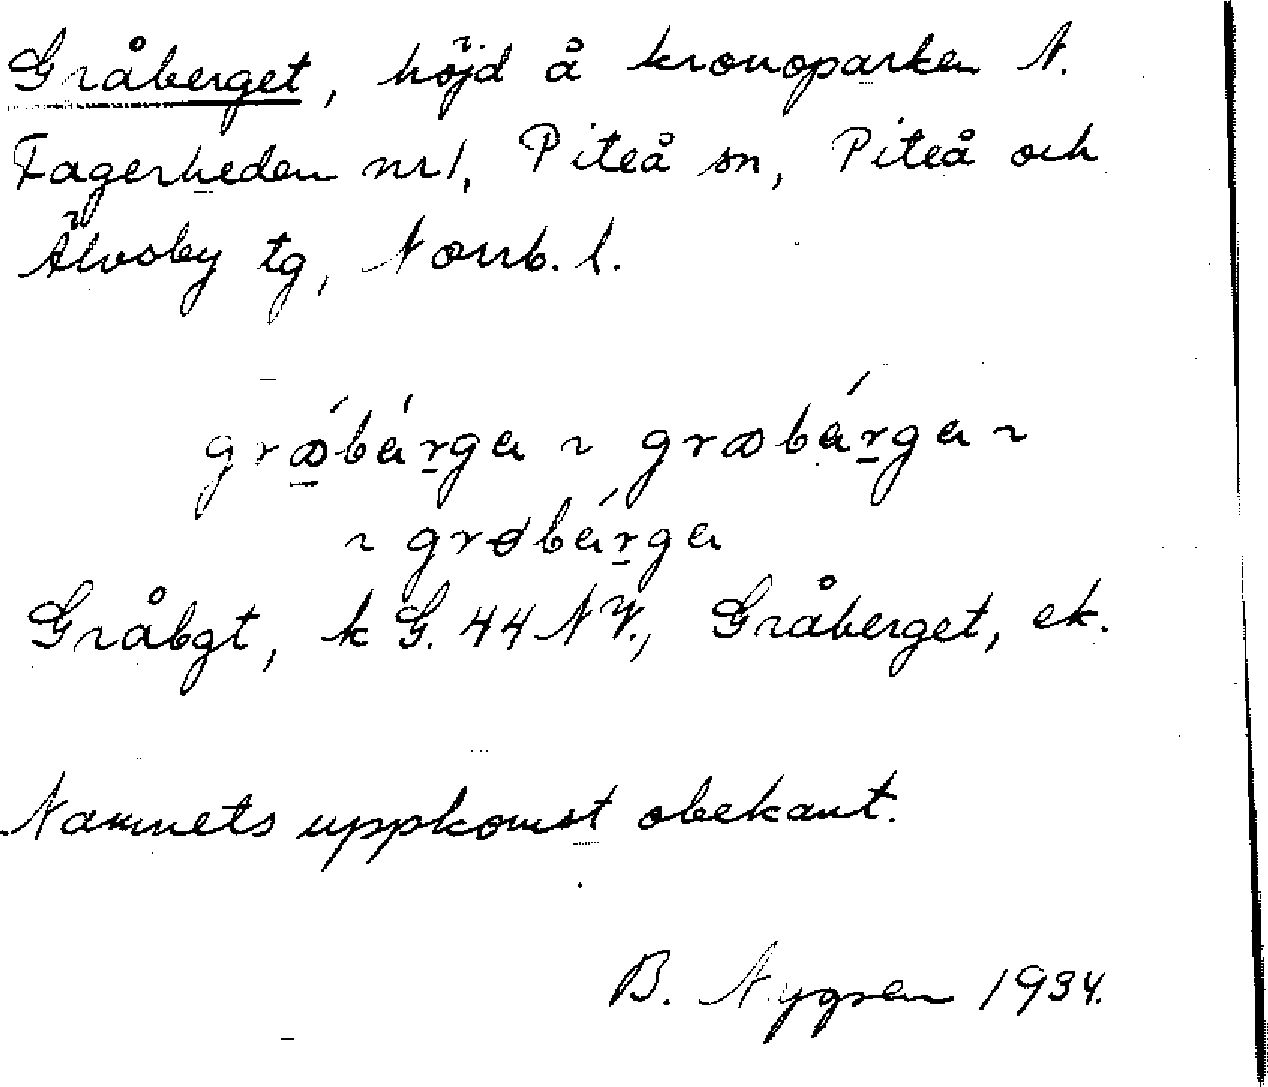 Gråberget, höjd å kronoparken N.
Fagerheden nr 1, Piteå sn, Piteå och
Älvsby tg, Norrb. l.
grǻbárga ~ gråbárga ~
~ grøbárga
Gråbgt, k G. 44 NV., Gråberget, ek.
Namnets uppkomst obekant.
B. Nygren 1934.